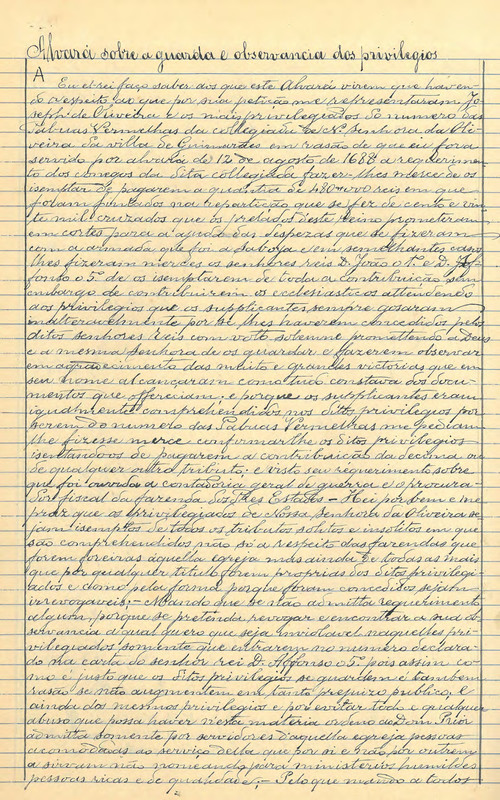 Alvará sobre a guarda e observancia dos privilegios
A
Eu el-rei faço saber aos que este Alvará virem que haven-
do respeito ao que por sua petição me representaram Jo-
seph de Oliveira e os mais privilegiados do numero das
Tabuas Vermelhas da collegiada de N. Senhora da Oli-
veira da villa de Guimarães em rasão de que eu fora
servido por alvará de 12 de agosto de 1688 a requerimen-
to dos conegos da dita collegiada fazer-lhes merce de os
isemptar de pagarem a quantia de 480$000 reis em que
foram fintados na repartição que se fez de cento e vin-
te mil cruzados que os prelados deste reino prometeram
em cortes para a ajuda das despezas que se fizeram
com a armada que foi a Saboya e em semelhantes casos
lhes fizeram mercês os senhores reis D. João o 1º e D. Af-
fonso o 5º de os isemptarem de toda a contribuição sem
embargo de contribuirem os ecclesiasticos attendendo
aos privilegios que os supplicantes sempre gosaram
inalteravelmente por se lhes haverem concedidos pelos
ditos senhores reis com voto solemne promettendo a Deus
e a mesma Senhora de os guardar e fazerem observar
em agradecimento das muito e grandes victorias que em
seu nome alcançaram como tudo constava dos docu-
mentos que offereciam; e porque os supplicantes eram
igualmente comprehendidos nos ditos privilegios por
serem do numero das Tabuas Vermelhas me pediam
lhe fizesse merce confirmarlhe os ditos privilegios
isentando-os de pagarem a contribuição da decima ou
de qualquer outro tributo; e visto seu requerimento sobre
que foi ouvida a contadoria geral de guerra e o procura-
dor fiscal da fazenda dos Tres Estados - Hei por bem e me
praz que os privilegiados de Nossa Senhora da Oliveira se-
jam isemptos de todos os tributos solitos e insolitos em que
são comprehendidos não só a respeito das fazendas que
forem foreiras áquella egreja mas ainda de todas as mais
que por qualquer titulo forem proprias dos ditos privilegi-
ados e como pela forma porque foram concedidos sejam
irrevogaveis; - Mando que se não admitta requerimento
algum, porque se pretenda revogar e encontrar a sua ob-
servancia a qual quero que seja inviolavel naquelles pri-
vilegiados somente que entrarem no numero declara-
do na carta do senhor rei D. Affonso o 5º pois assim co-
mo é justo que os ditos privilegios se guardem é tambem
rasão se não augmentem em tanto prejuizo publico, e
ainda dos mesmos privilegios e por evitar todo e qualquer
abuso que possa haver nesta materia ordeno ao Dom Prior
admitta somente por servidores d'aquella egreja pessoas
acomodadas ao serviço della que por si e não por outrem
a sirvam não nomeando para ministerios humildes
pessoas ricas e de qualidade; - Pelo que mando a todos